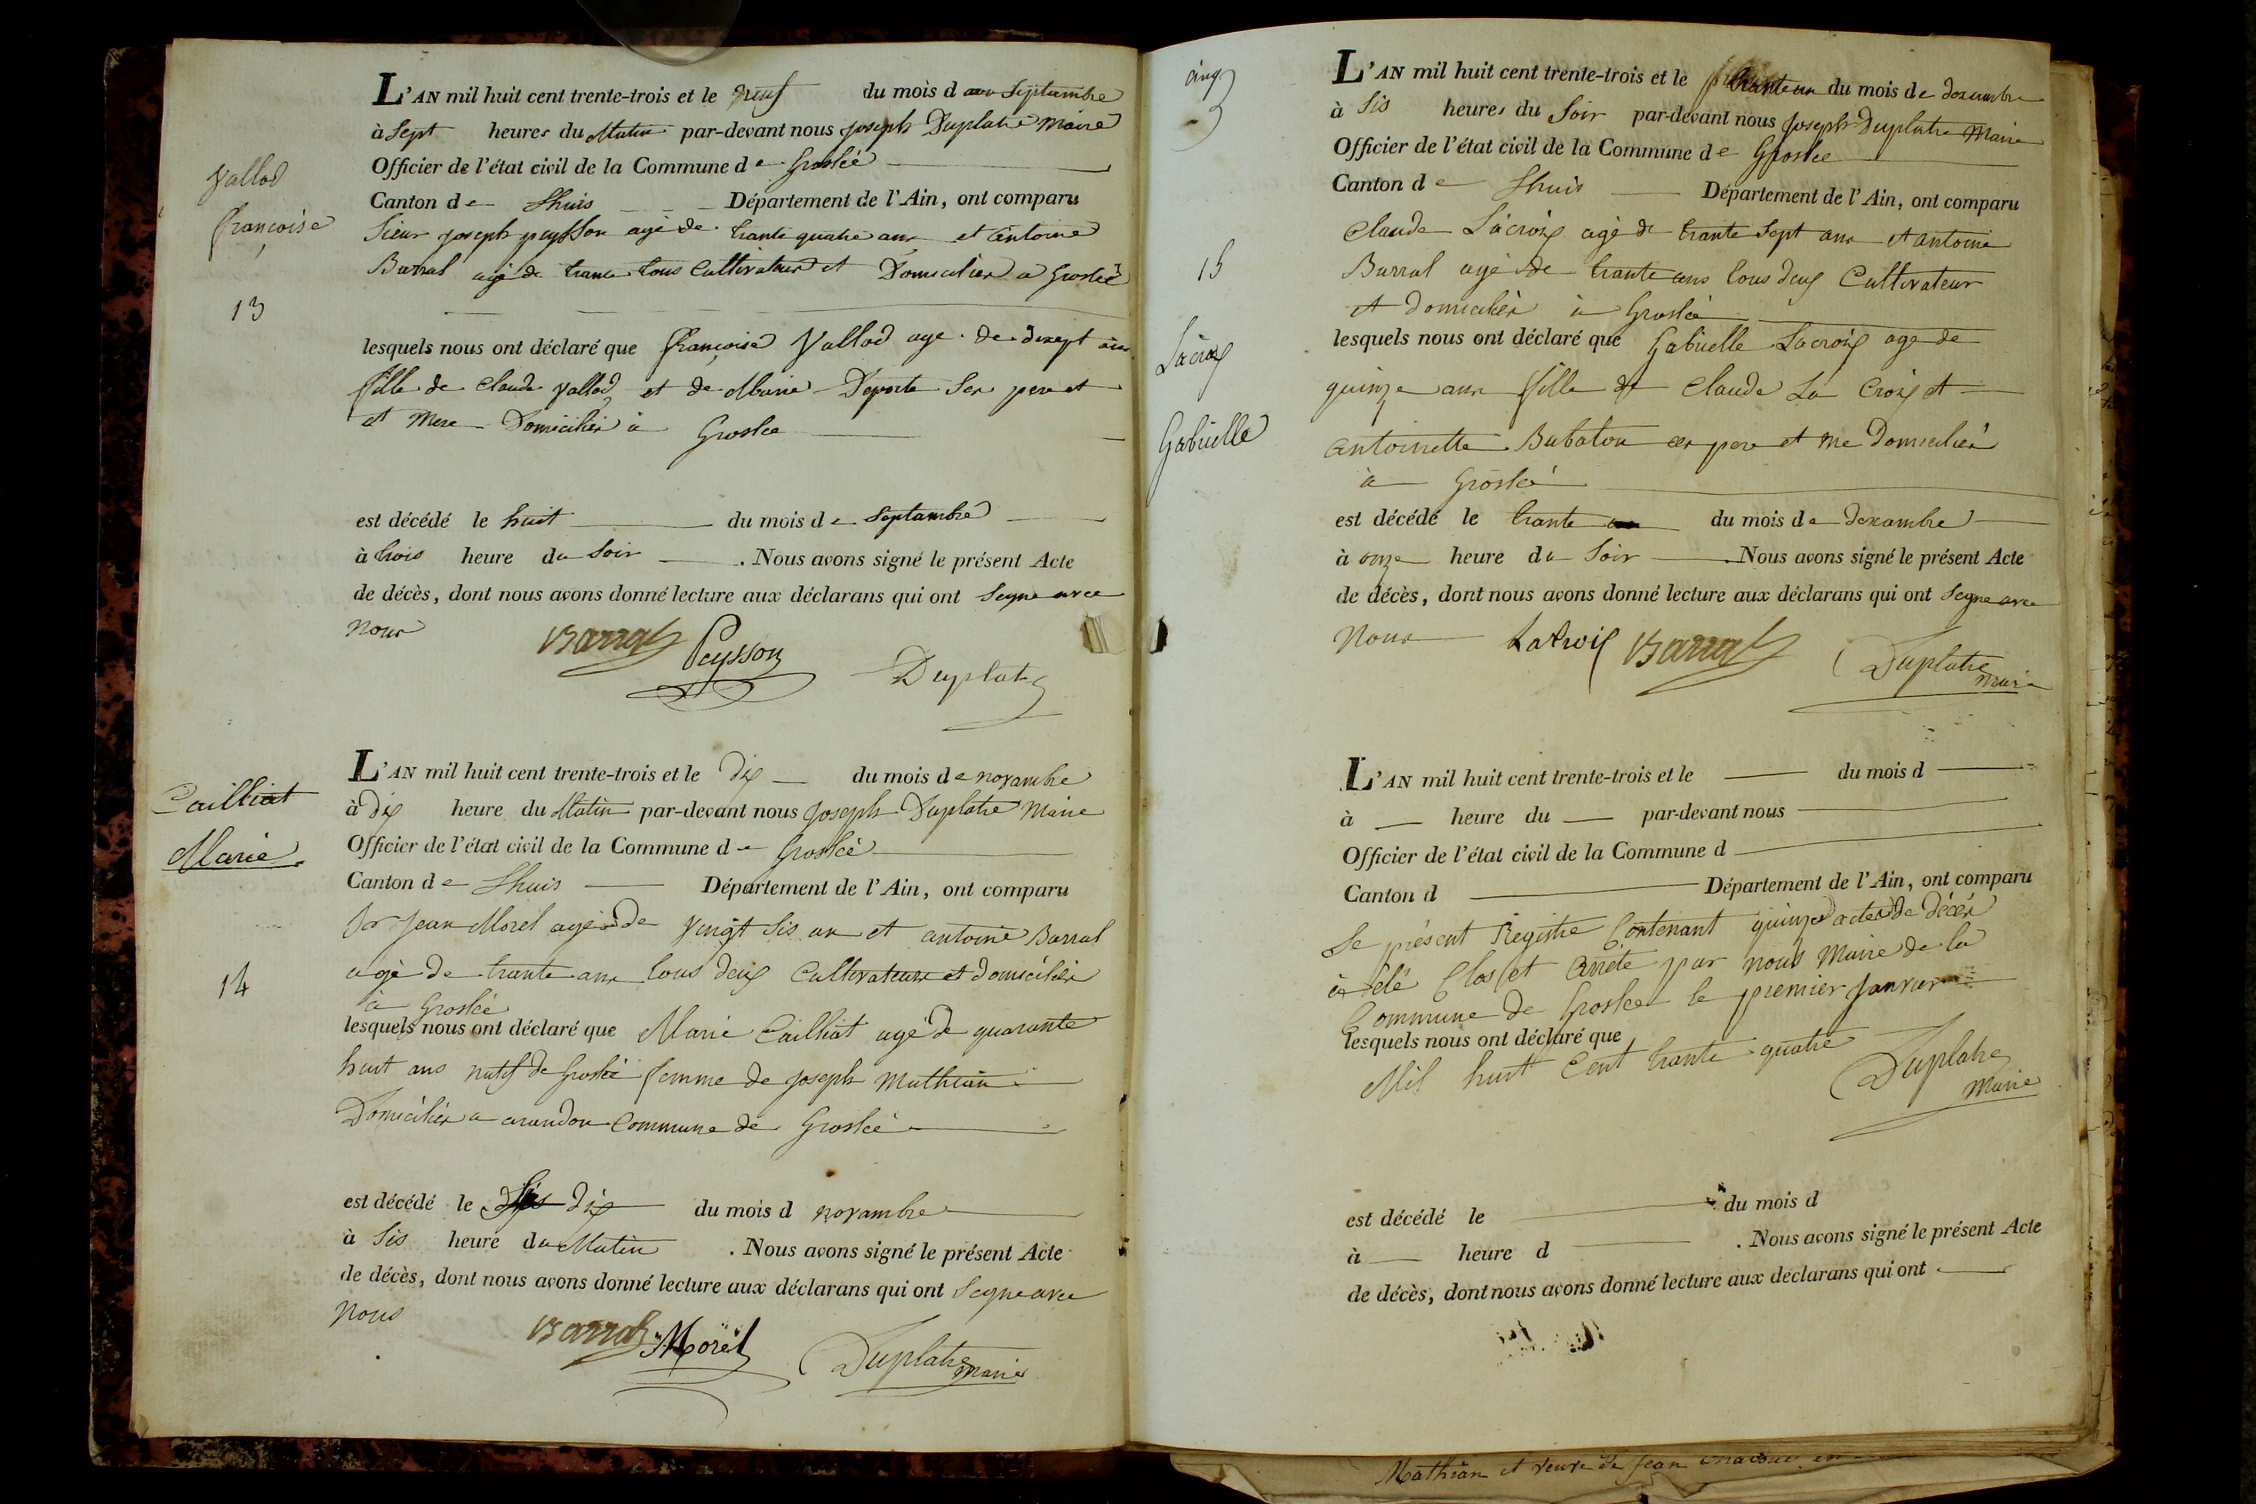 Vallod
françoise
13
L'AN mil huit cent trente-trois et le neuf du mois d Septambre
à Sept heures du Matin par-devant nous joseph Duplatre Maire
Officier de l'état civil de la Commune de Groslée
Canton de Lhuis Département de l'Ain, ont comparu
Sieur joseph peysson agé de trante quatre ans et antoine
Barral agé de trante tous Cultivateur et Domicilies a Groslée
lesquels nous ont déclaré que françoise Vallod age de disept ans
fille de Claude Vallod et de Marie Deporte Ses pere et
et Mere Domicilies à Groslee
est décédé le huit du mois de Septambre
à trois heure du Soir . Nous avons signé le présent Acte
de décès, dont nous avons donné lecture aux déclarans qui ont Segne avec
nous Barral Peysson Duplatre
Cailliat
Marie
14
L'AN mil huit cent trente-trois et le dix du mois de novambre
à dix heure du Matin par-devant nous joseph Duplatre Maire
Officier de l'état civil de la Commune de Groslée
Canton de Lhuis Département de l'Ain, ont comparu
Sr Jean Morel agé de vingt Sis an et antoine Barral
agé de trante ans tous deux Cultivateurs et domicilies
à Groslée
lesquels nous ont déclaré que Marie Cailliat agé de quarante
huit ans natif de Groslée femme de joseph Mathian
Domicilies a arandon Commune de Groslée
est décédé le dix du mois d novambre
à Sis heure du Matin . Nous avons signé le présent Acte
de décès, dont nous avons donné lecture aux déclarans qui ont Segne avec
nous Barral Morel Duplatre maire
15
Lacroix
Gabrielle
L'AN mil huit cent trente-trois et le trante un du mois de dexambre
à Sis heures du Soir par-devant nous Joseph Duplatre Maire
Officier de l'état civil de la Commune de Groslee
Canton de Lhuis Département de l'Ain, ont comparu
Claude Lacroix agé de trante Sept ans et antoine
Barral agé de trante ans tous deux Cultivateur
et domicilies à Groslée
lesquels nous ont déclaré que Gabrielle Lacroix age de
quinze ans fille de Claude La Croix et
antoinette Babolou ses pere et me Domicilies
à Groslée
est décédé le trante du mois de dexambre
à onze heure du Soir . Nous avons signé le présent Acte
de décès, dont nous avons donné lecture aux déclarans qui ont Segne avec
Nous Lacroix Barral Duplatre maire
L'AN mil huit cent trente-trois et le du mois d
à heure du par-devant nous
Officier de l'état civil de la Commune d
Canton d Département de l'Ain, ont comparu
Le présent Registre Contenant quinze actes de décès
à été Clos et arrêté par nous Maire de la
Commune de Groslee le premier janvier
lesquels nous ont déclaré que
Mil huit Cent trante quatre Duplatre
Maire
est décédé le du mois d
à heure d . Nous avons signé le présent Acte
de décès, dont nous avons donné lecture aux déclarans qui ont
Mathian et veuve de Jean